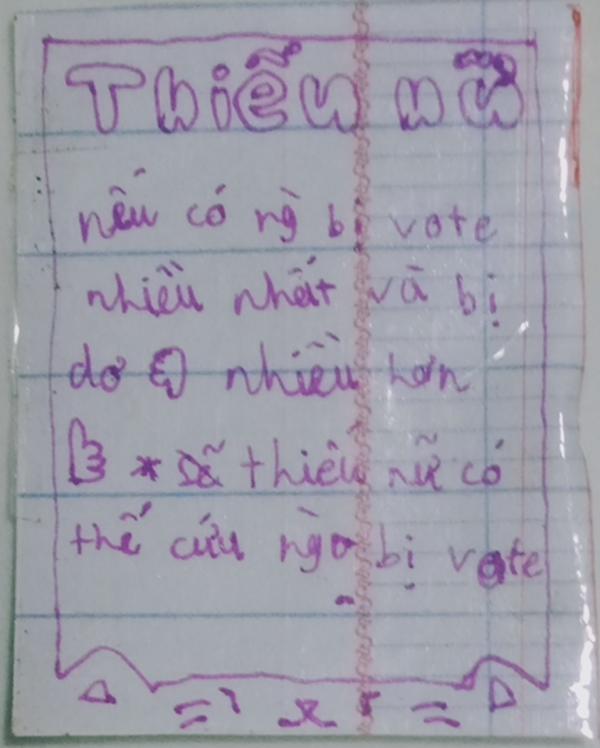 Thiếu nữ
nếu có ng bị vote
nhiều nhất và bị
dơ 👎 nhiều hơn
👍 * thiếu nữ có
thể cứu ng bị vote